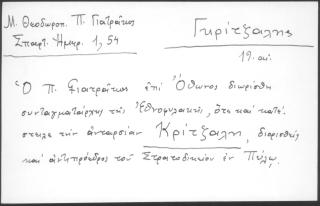 Μ. Θεοδωροπ. Π. Γιατράκος
Σπαρτ. Ημερ. 1, 54
Γκρίτζαλης
19. αι.
Ὁ Π. Γιατράκος ἐπὶ Ὄθωνος διωρίσθη
συνταγματάρχης τῆς Ἐθνοφυλακῆς, ὅτε καὶ κατέ-
στειλε τὴν ἀνταρσίαν Κρίτζαλη, διορισθεὶς
καὶ ἀντιπρόεδρος τοῦ Στρατοδικείου ἐν Πύλῳ.